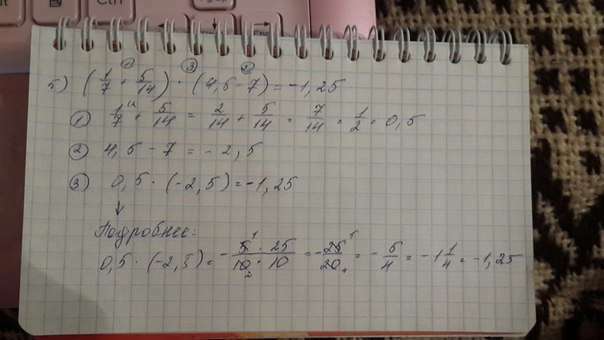 Ctrl
① ③ ②
5) (1/7 + 5/14) · (4,5 - 7) = -1,25
① 1/7 \2 + 5/14 = 2/14 + 5/14 = 7/14 = 1/2 = 0,5
② 4,5 - 7 = - 2,5
③ 0,5 · (-2,5) = -1,25
↓
Подробнее:
0,5 · (-2,5) = - 5 ¹ · 25 / 10 ₂ · 10 = - 25 ⁵ / 20 ₄ = - 5/4 = - 1 1/4 = -1,25